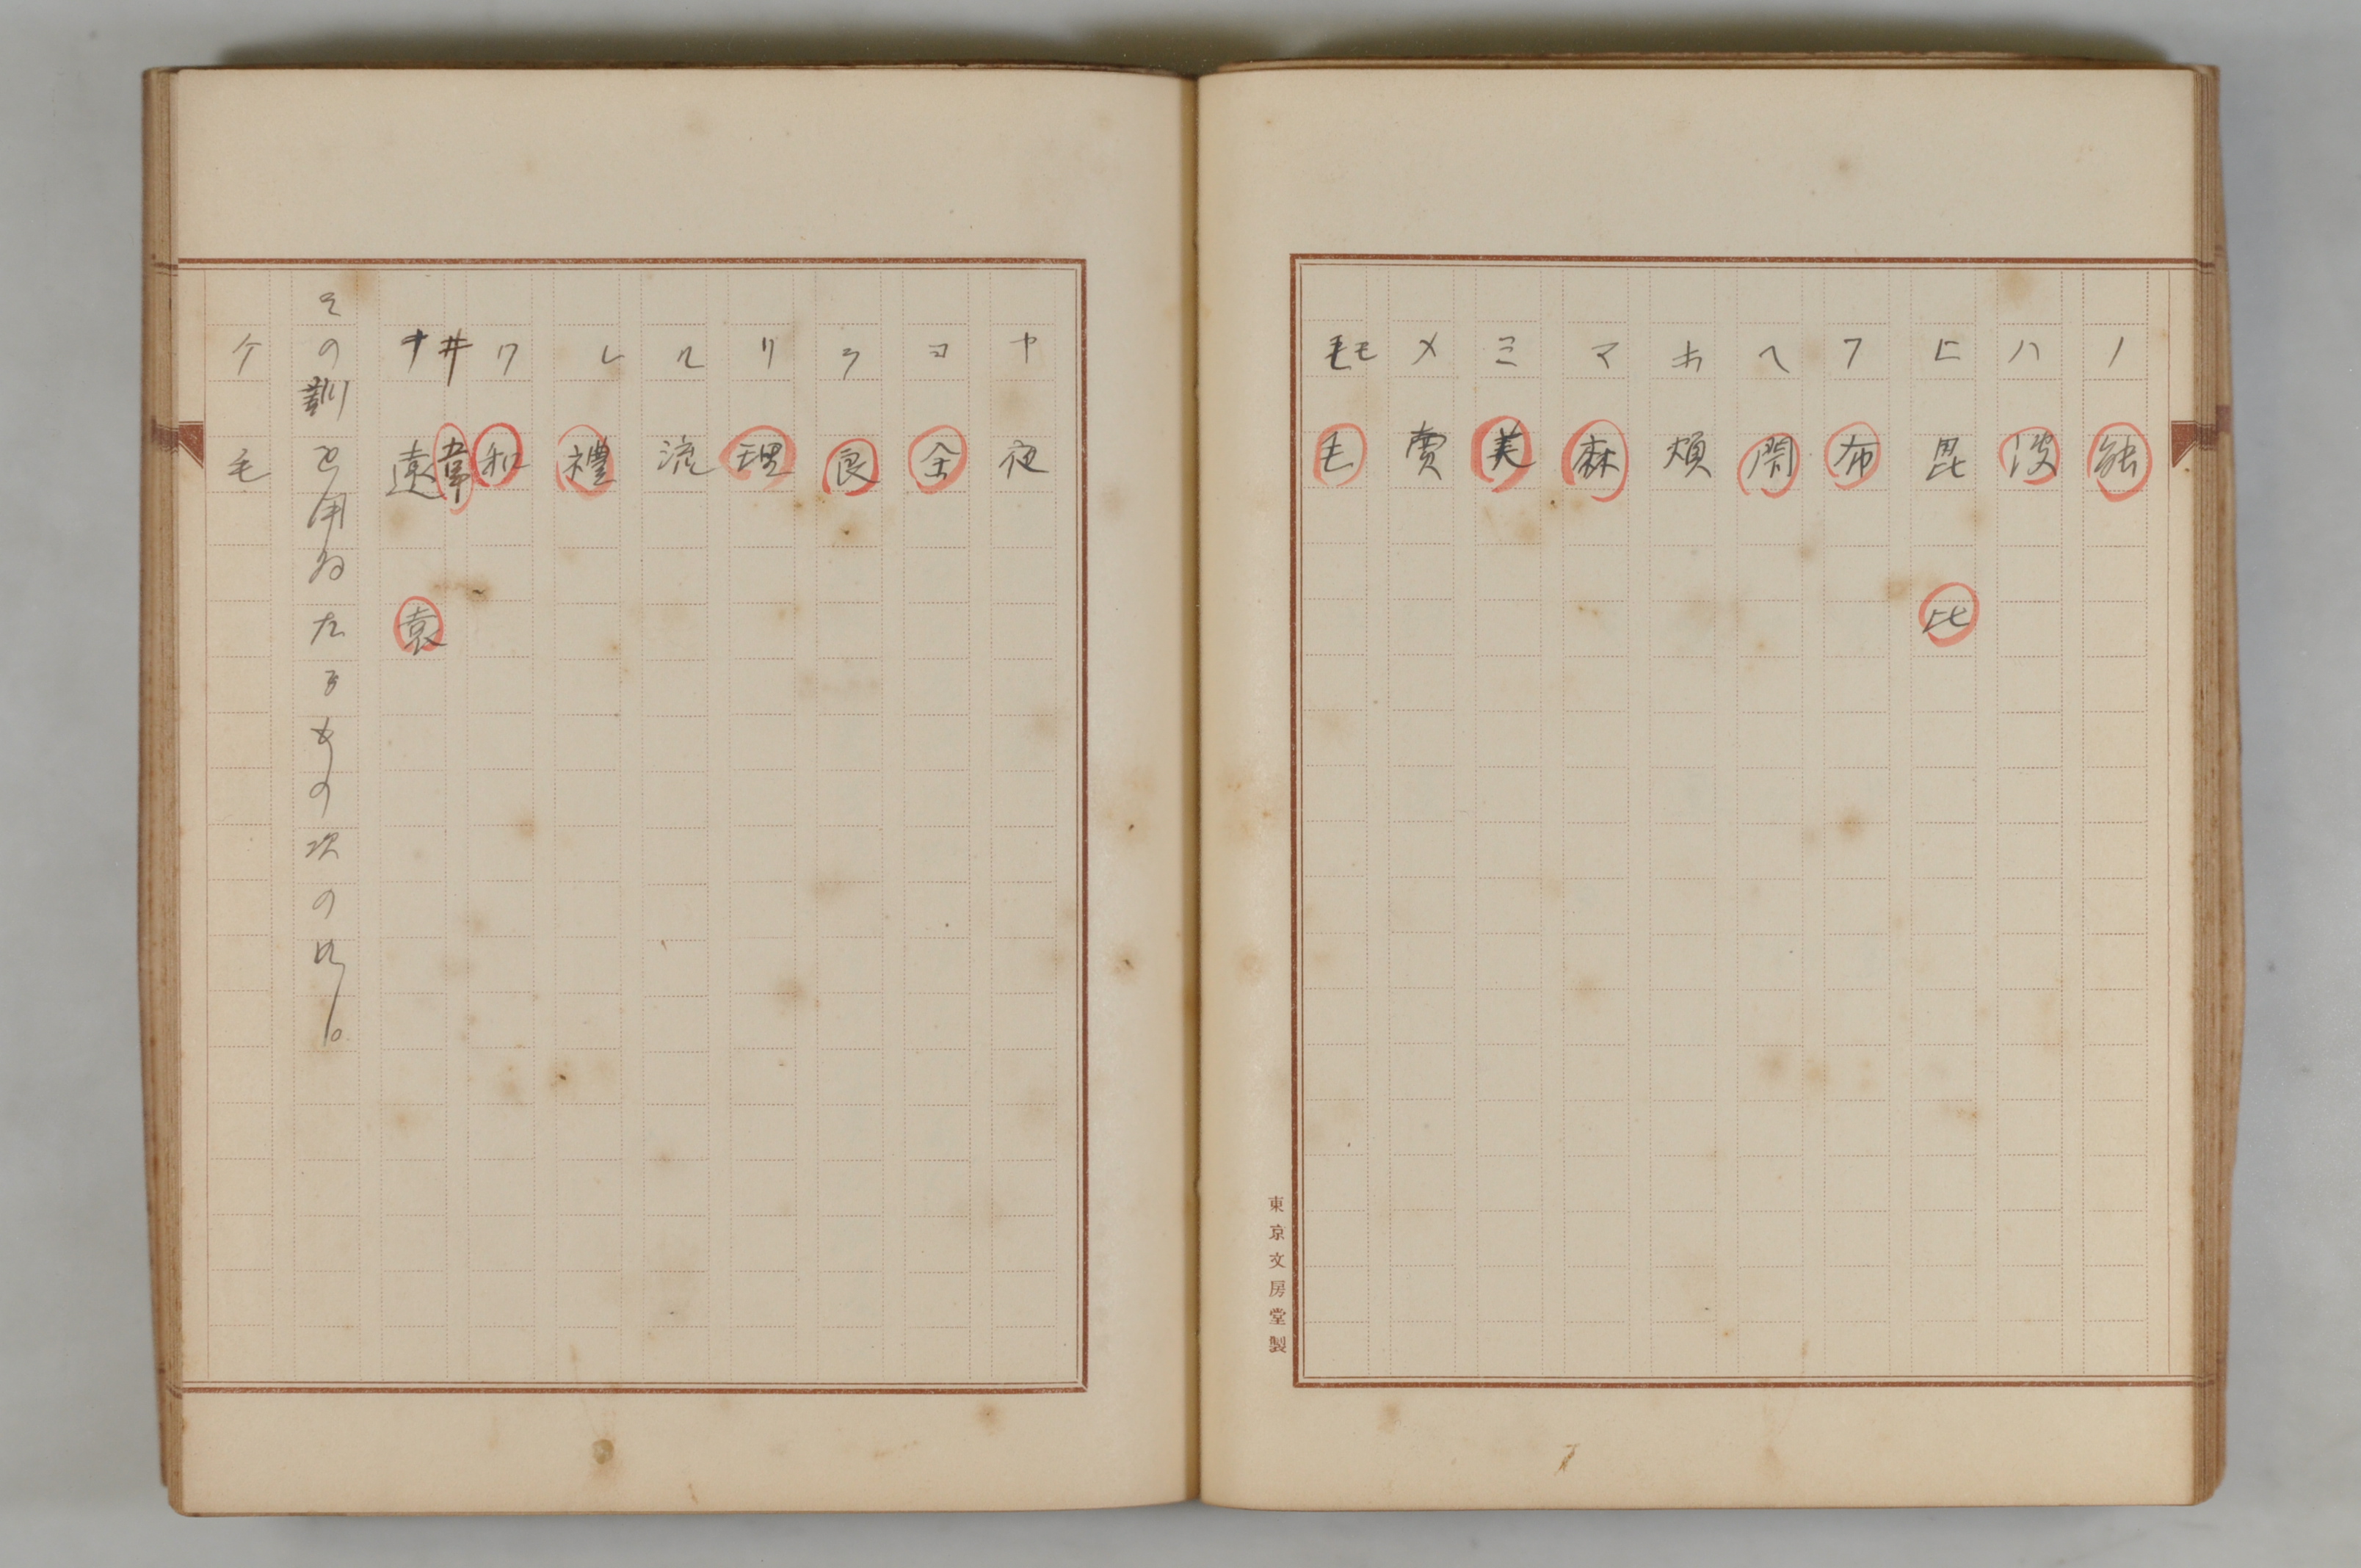 ノ 能
ハ 波
ヒ 毘 比
フ 布
ヘ 閇
ホ 煩
マ 麻
ミ 美
メ 賣
モ 毛
東京文房堂製
ヤ 夜
ヨ 余
ラ 良
リ 理
ル 流
レ 禮
ワ 和
井 韋
遠 袁
その訓を用ゐたるもの次の如し。
ケ 毛